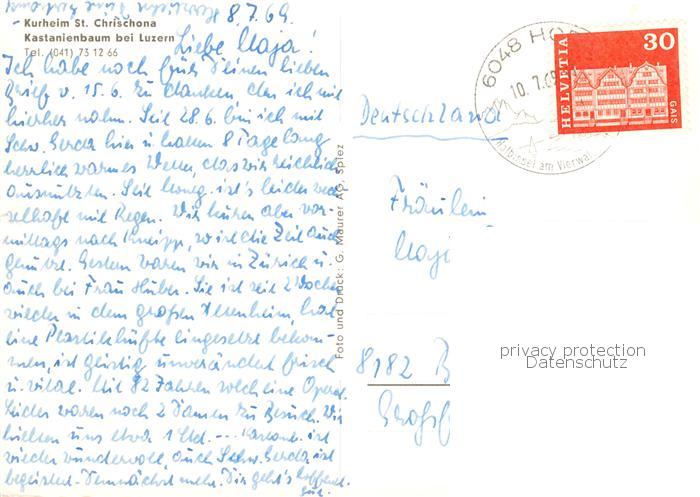 8.7.69.
Kurheim St. Chrischona
Kastanienbaum bei Luzern
Tel. (041) 73 12 66
Liebe Maja!
Ich habe noch für Deinen lieben
Brief v. 15.6. zu danken den ich mit
hierher nahm. Seit 28.6. bin ich mit
Schw. Gerda hier u. hatten 8 Tage lang
herrlich warmes Wetter, das wir reichlich
ausnutzten. Seit Montg. ist's leider wech
selhaft mit Regen. Wir kuren aber vor-
mittags nach Kneipp, so ist die Zeit auch
genutzt. Gestern waren wir in Zürich u.
auch bei Frau Huber. Sie ist seit 2 Wochen
wieder in dem großen Altenheim, hat
eine Plastikhüfte eingesetzt bekom-
men, ist geistig unverändert frisch
u. vital. Mit 82 Jahren solch eine Operat.
Leider waren noch 2 Damen zu Besuch. Wir
hielten uns etwa 1 Std. ist
wieder wundervoll, auch Schw. Gerda ist
begeistert. Demnächst mehr. Dir geht's hoffentl.
gut.
Foto und Druck: G. Maurer AG, Spiez
6048 HO
10.7.69
Halbinsel am Vierwal
HELVETIA
30
GAIS
Deutschland
Fräulein
Maj
8182 B
Großf
privacy protection
Datenschutz